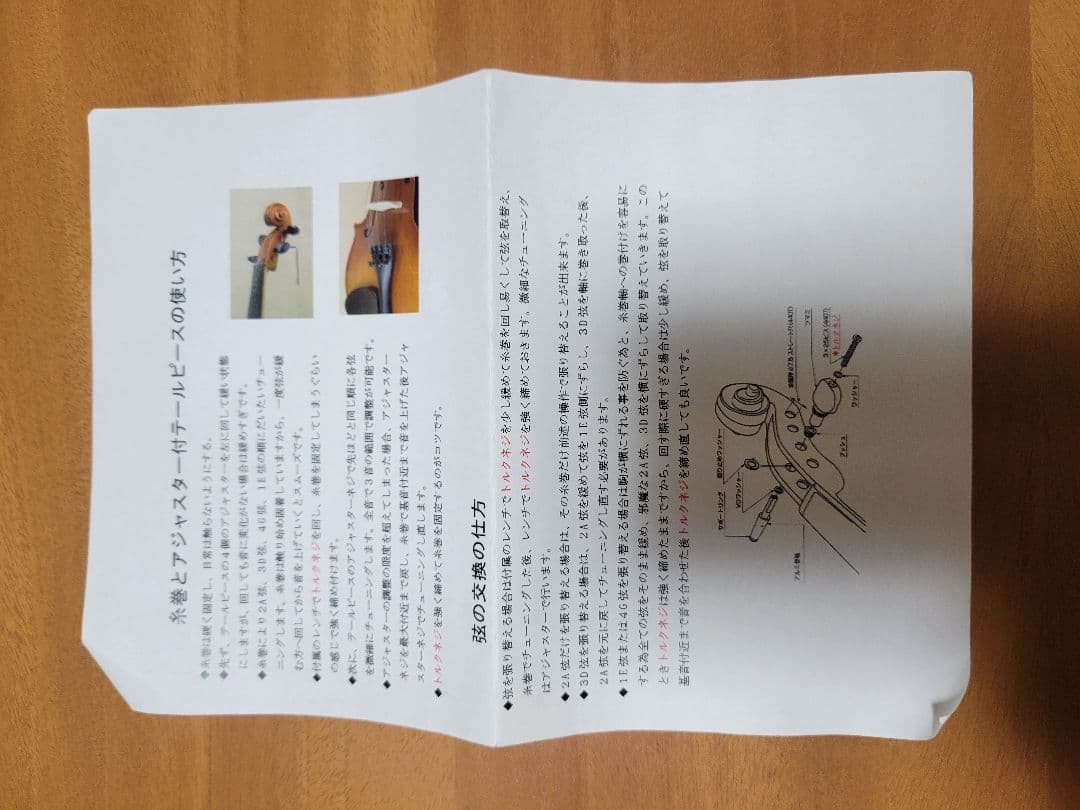 糸巻とアジャスター付テールピースの使い方
◆糸巻は硬く固定し、日常は触らないようにする。
◆先ず、テールピースの4個のアジャスターを左に回して緩い状態
にしますが、回しても音に変化がない場合は緩めすぎです。
◆糸巻により2A弦、3D弦、4G弦、1E弦の順にだいたいチュー
ニングします。糸巻は触り始め固着していますから、一度弦が緩
む方へ回してから音を上げていくとスムーズです。
◆付属のレンチでトルクネジを回し、糸巻を固定してしまうぐらい
の感じで強く締め付けます。
◆次に、テールピースのアジャスターネジで先ほどと同じ順に各弦
を微細にチューニングします。全音で3音の範囲で調整が可能です。
◆アジャスターの調整の限度を超えてしまった場合、アジャスター
ネジを最大付近まで戻し、糸巻で基音付近まで音を上げた後アジャ
スターネジでチューニングし直します。
◆トルクネジを強く締めて糸巻を固定するのがコツです。
弦の交換の仕方
◆弦を張り替える場合は付属のレンチでトルクネジを少し緩めて糸巻を回し易くして弦を取替え、
糸巻でチューニングした後、レンチでトルクネジを強く締めておきます。微細なチューニング
はアジャスターで行います。
◆2A弦だけを張り替える場合は、その糸巻だけ前述の操作で張り替えることが出来ます。
◆3D弦を張り替える場合は、2A弦を緩めて弦を1E弦側にずらし、3D弦を軸に巻き取った後、
2A弦を元に戻してチューニングし直す必要があります。
◆1E弦または4G弦を張り替える場合は駒が横にずれる事を防ぐ為と、糸巻軸への巻付けを容易に
する為全ての弦をそのまま緩め、邪魔な2A弦、3D弦を横にずらして取り替えていきます。この
ときトルクネジは強く締めたままですから、回す際に硬すぎる場合は少し緩め、弦を取り替えて
基音付近まで音を合わせた後トルクネジを締め直しても良いです。
サポートリング
VDワッシャー
廻り止めワッシャー
アルミ巻軸
ブッシュ
ワッシャー
ツマミ
◆トルクネジ